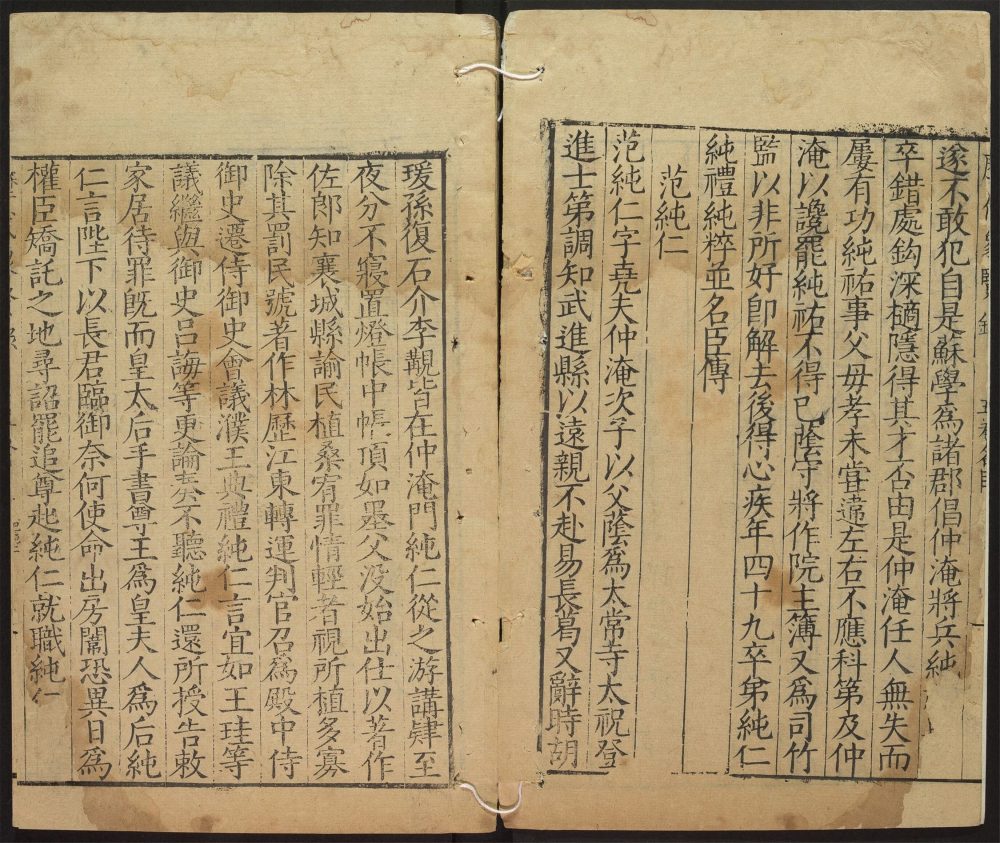 遂不敢犯自是蘇學爲諸郡倡仲淹將兵純
卒錯處鈎深擿隱得其才否由是仲淹任人無失而
屢有功純祐事父母孝未嘗違左右不應科第及仲
淹以讒罷純祐不得已蔭守將作院主簿又爲司竹
監以非所好卽解去後得心疾年四十九卒弟純仁
純禮純粹並名臣傳
范純仁
范純仁字堯夫仲淹次子以父蔭爲太常寺太祝登
進士第調知武進縣以遠親不赴易長葛又辭時胡
瑗孫復石介李覯皆在仲淹門純仁從之游講肄至
夜分不寢置燈帳中帳頂如墨父没始出仕以著作
佐郎知襄城縣諭民植桑宥罪情輕者視所植多寡
除其罰民號著作林歷江東轉運判官召爲殿中侍
御史遷侍御史會議濮王典禮純仁言宜如王珪等
議繼與御史吕誨等更論奏不聽純仁還所授告敕
家居待罪旣而皇太后手書尊王爲皇夫人爲后純
仁言陛下以長君臨御奈何使命出房闈恐異日爲
權臣矯託之地尋詔罷追尊起純仁就職純仁